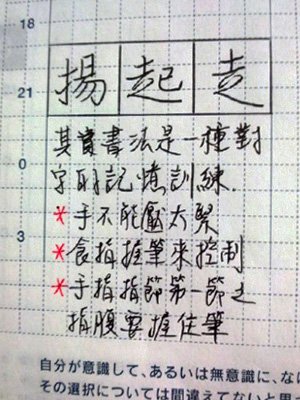 18
21
揚起走
其實書法是一種對
字的記憶訓練.
0
*手不能壓太緊
*食指握筆來控制
3
*手指指節第一節之
指腹要握住筆
自分が意識して、あるいは無意識に、なに
その選択については間違えてないと思っ